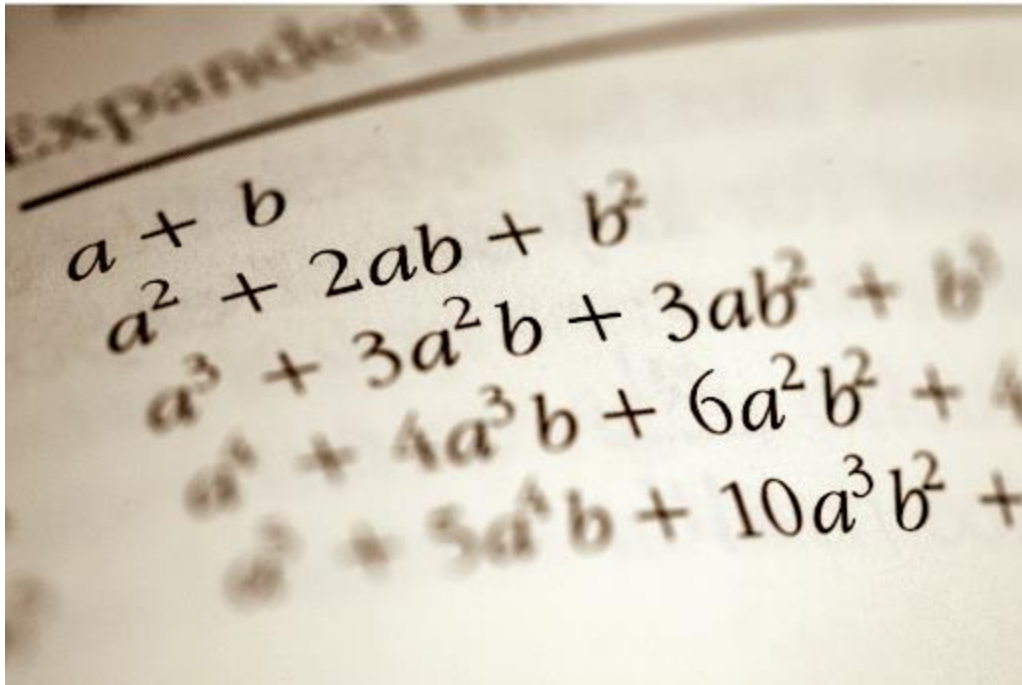 Expanded
a + b
a² + 2ab + b²
a³ + 3a²b + 3ab² + b³
a⁴ + 4a³b + 6a²b² + 4
a⁵ + 5a⁴b + 10a³b² +